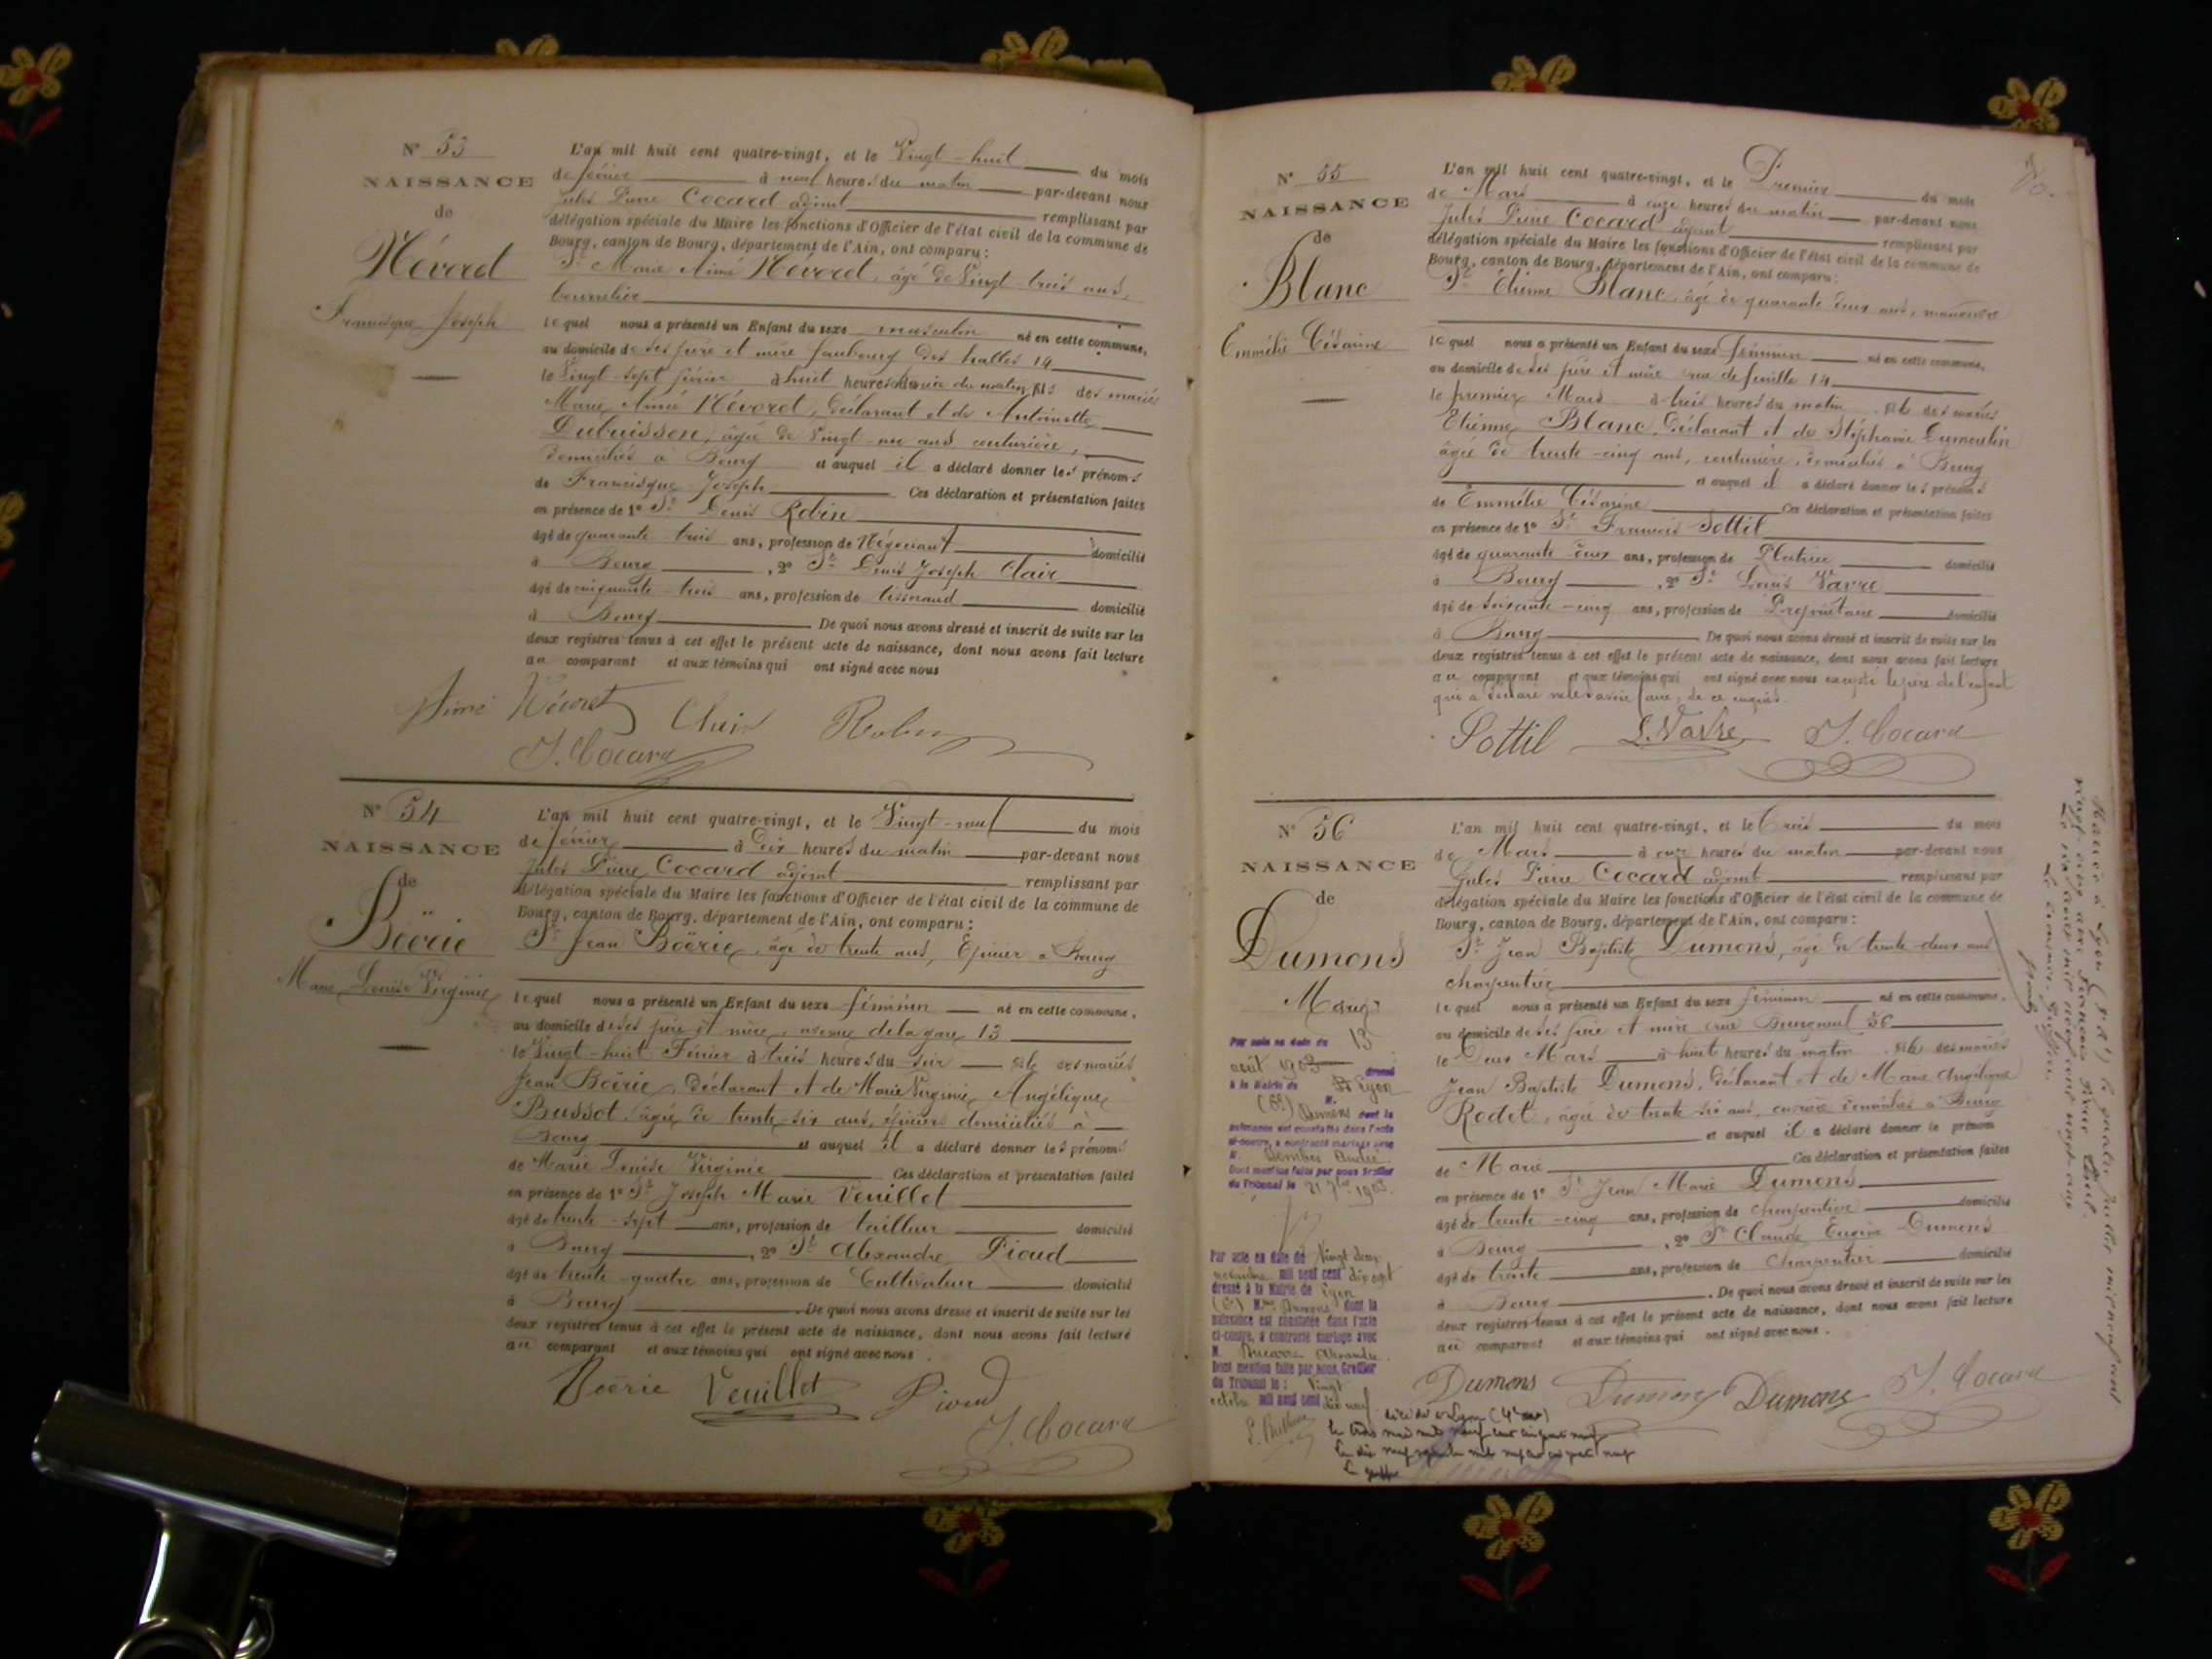 N° 53
NAISSANCE
de
Névoret
Francisque Joseph
L'an mil huit cent quatre-vingt, et le Vingt-huit du mois
de février à neuf heures du matin par-devant nous
Jules Pierre Cocard adjoint remplissant par
délégation spéciale du Maire les fonctions d'Officier de l'état civil de la commune de
Bourg, canton de Bourg, département de l'Ain, ont comparu:
Sr Marie Aimé Névoret, âgé de Vingt-trois ans,
bourrelier
lequel nous a présenté un Enfant du sexe masculin né en cette commune,
au domicile de ses père et mère faubourg des halles 14
le Vingt-sept février à huit heures du matin, fils des mariés
Marie Aimé Névoret, déclarant et de Antoinette
Dubuisson, âgée de Vingt-un ans couturière,
domiciliés à Bourg et auquel il a déclaré donner les prénoms
de Francisque Joseph Ces déclaration et présentation faites
en présence de 1° Sr Denis Robin
âgé de quarante-trois ans, profession de Négociant domicilié
à Bourg, 2° Sr Denis Joseph Clair
âgé de cinquante-trois ans, profession de tisserand domicilié
à Bourg De quoi nous avons dressé et inscrit de suite sur les
deux registres tenus à cet effet le présent acte de naissance, dont nous avons fait lecture
au comparant et aux témoins qui ont signé avec nous
Aimé Névoret Clair Robin
J. Cocard
N° 54
NAISSANCE
de
Boërie
Marie Louise Virginie
L'an mil huit cent quatre-vingt, et le Vingt-neuf du mois
de février à Dix heures du matin par-devant nous
Jules Pierre Cocard adjoint remplissant par
délégation spéciale du Maire les fonctions d'Officier de l'état civil de la commune de
Bourg, canton de Bourg, département de l'Ain, ont comparu:
Sr Jean Boërie, âgé de trente ans, Epicier à Bourg
lequel nous a présenté un Enfant du sexe féminin né en cette commune,
au domicile de ses père et mère, avenue de la gare 13
le Vingt-huit Février à trois heures du soir fille des mariés
Jean Boërie, déclarant et de Marie Virginie Angélique
Bussot, âgée de trente-six ans, épiciers domiciliés à
Bourg et auquel il a déclaré donner les prénoms
de Marie Louise Virginie Ces déclaration et présentation faites
en présence de 1° Sr Joseph Marie Veuillet
âgé de trente-sept ans, profession de tailleur domicilié
à Bourg, 2° Sr Alexandre Pioud
âgé de trente-quatre ans, profession de Cultivateur domicilié
à Bourg. De quoi nous avons dressé et inscrit de suite sur les
deux registres tenus à cet effet le présent acte de naissance, dont nous avons fait lecture
au comparant et aux témoins qui ont signé avec nous.
Boërie Veuillet Pioud
J. Cocard
N° 55
NAISSANCE
de
Blanc
Emmélie Césarine
L'an mil huit cent quatre-vingt, et le Premier du mois
de Mars à onze heures du matin par-devant nous
Jules Pierre Cocard adjoint remplissant par
délégation spéciale du Maire les fonctions d'Officier de l'état civil de la commune de
Bourg, canton de Bourg, département de l'Ain, ont comparu:
Sr Etienne Blanc, âgé de quarante-deux ans, manœuvre
lequel nous a présenté un Enfant du sexe féminin né en cette commune,
au domicile de ses père et mère rue 14
le premier Mars à trois heures du matin fille des mariés
Etienne Blanc, déclarant et de Stéphanie Dumoulin
âgée de trente-cinq ans, couturière, domiciliés à Bourg
et auquel il a déclaré donner les prénoms
de Emmélie Césarine Ces déclaration et présentation faites
en présence de 1° Sr François Sottil
âgé de quarante-deux ans, profession de Platrier domicilié
à Bourg, 2° Sr Louis Vavre
âgé de soixante-cinq ans, profession de Propriétaire domicilié
à Bourg De quoi nous avons dressé et inscrit de suite sur les
deux registres tenus à cet effet le présent acte de naissance, dont nous avons fait lecture
au comparant et aux témoins qui ont signé avec nous excepté le père de l'enfant
qui a déclaré ne le savoir faire, de ce enquis.
Sottil L. Vavre J. Cocard
N° 56
NAISSANCE
de
Dumons
Marie
Par acte en date du 13
août 1903 dressé
à la Mairie de Lyon
(6e) M. Dumons dont la
naissance est constatée dans l'acte
ci-contre, a contracté mariage avec
M. André.
Dont mention faite par nous Greffier
du Tribunal le 21 7bre 1903.
Par acte en date du Vingt deux
novembre mil neuf cent dix sept
dressé à la Mairie de Lyon
(6e) Mme Dumons dont la
naissance est constatée dans l'acte
ci-contre, a contracté mariage avec
M. Alexandre.
Dont mention faite par nous, Greffier
du Tribunal le: Vingt
octobre mil neuf cent dix neuf
L'an mil huit cent quatre-vingt, et le Trois du mois
de Mars à onze heures du matin par-devant nous
Jules Pierre Cocard adjoint remplissant par
délégation spéciale du Maire les fonctions d'Officier de l'état civil de la commune de
Bourg, canton de Bourg, département de l'Ain, ont comparu:
Sr Jean Baptiste Dumons, âgé de trente-deux ans
charpentier
lequel nous a présenté un Enfant du sexe féminin né en cette commune,
au domicile de ses père et mère rue Bourgmayer 56
le Deux Mars à huit heures du matin fille des mariés
Jean Baptiste Dumons, déclarant et de Marie Angélique
Rodet, âgée de trente-six ans, domiciliés à Bourg
et auquel il a déclaré donner le prénom
de Marie Ces déclaration et présentation faites
en présence de 1° Sr Jean Marie Dumons
âgé de trente-cinq ans, profession de charpentier domicilié
à Bourg, 2° Sr Claude Eugène Dumons
âgé de trente ans, profession de Charpentier domicilié
à Bourg. De quoi nous avons dressé et inscrit de suite sur les
deux registres tenus à cet effet le présent acte de naissance, dont nous avons fait lecture
au comparant et aux témoins qui ont signé avec nous.
Dumons Dumons Dumons J. Cocard
Décédée à Lyon (4e)
le trois mai mil neuf cent cinquante neuf
Mariée à Lyon le quatre juillet mil neuf cent
vingt cinq avec François
Le mil neuf cent vingt cinq
Le Commis-Greffier